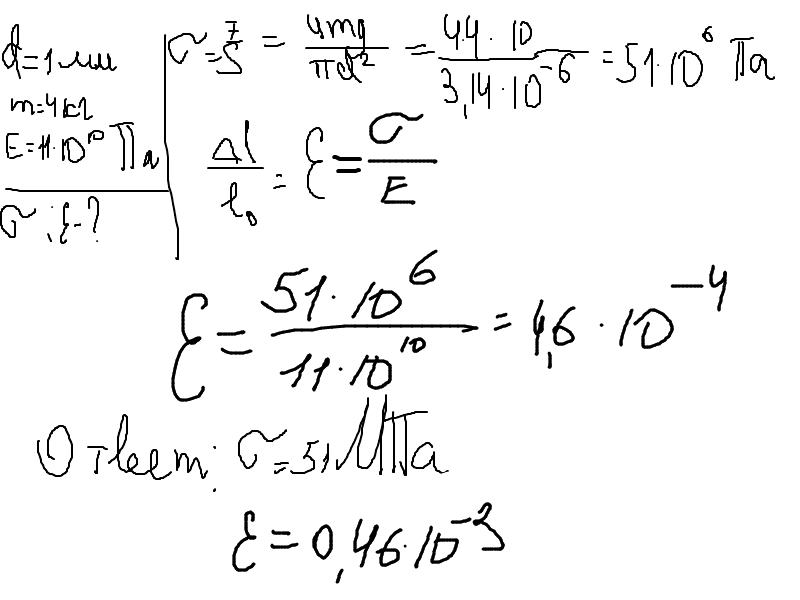 d=1мм
m=4кг
E=11·10¹⁰ Па
σ; ε-?
σ = F/S = 4mg/πd² = 4·4·10/3,14·10⁻⁶ = 51·10⁶ Па
Δl/l₀ = ε = σ/E
ε = 51·10⁶/11·10¹⁰ = 4,6·10⁻⁴
Ответ: σ=51МПа
ε=0,46·10⁻³